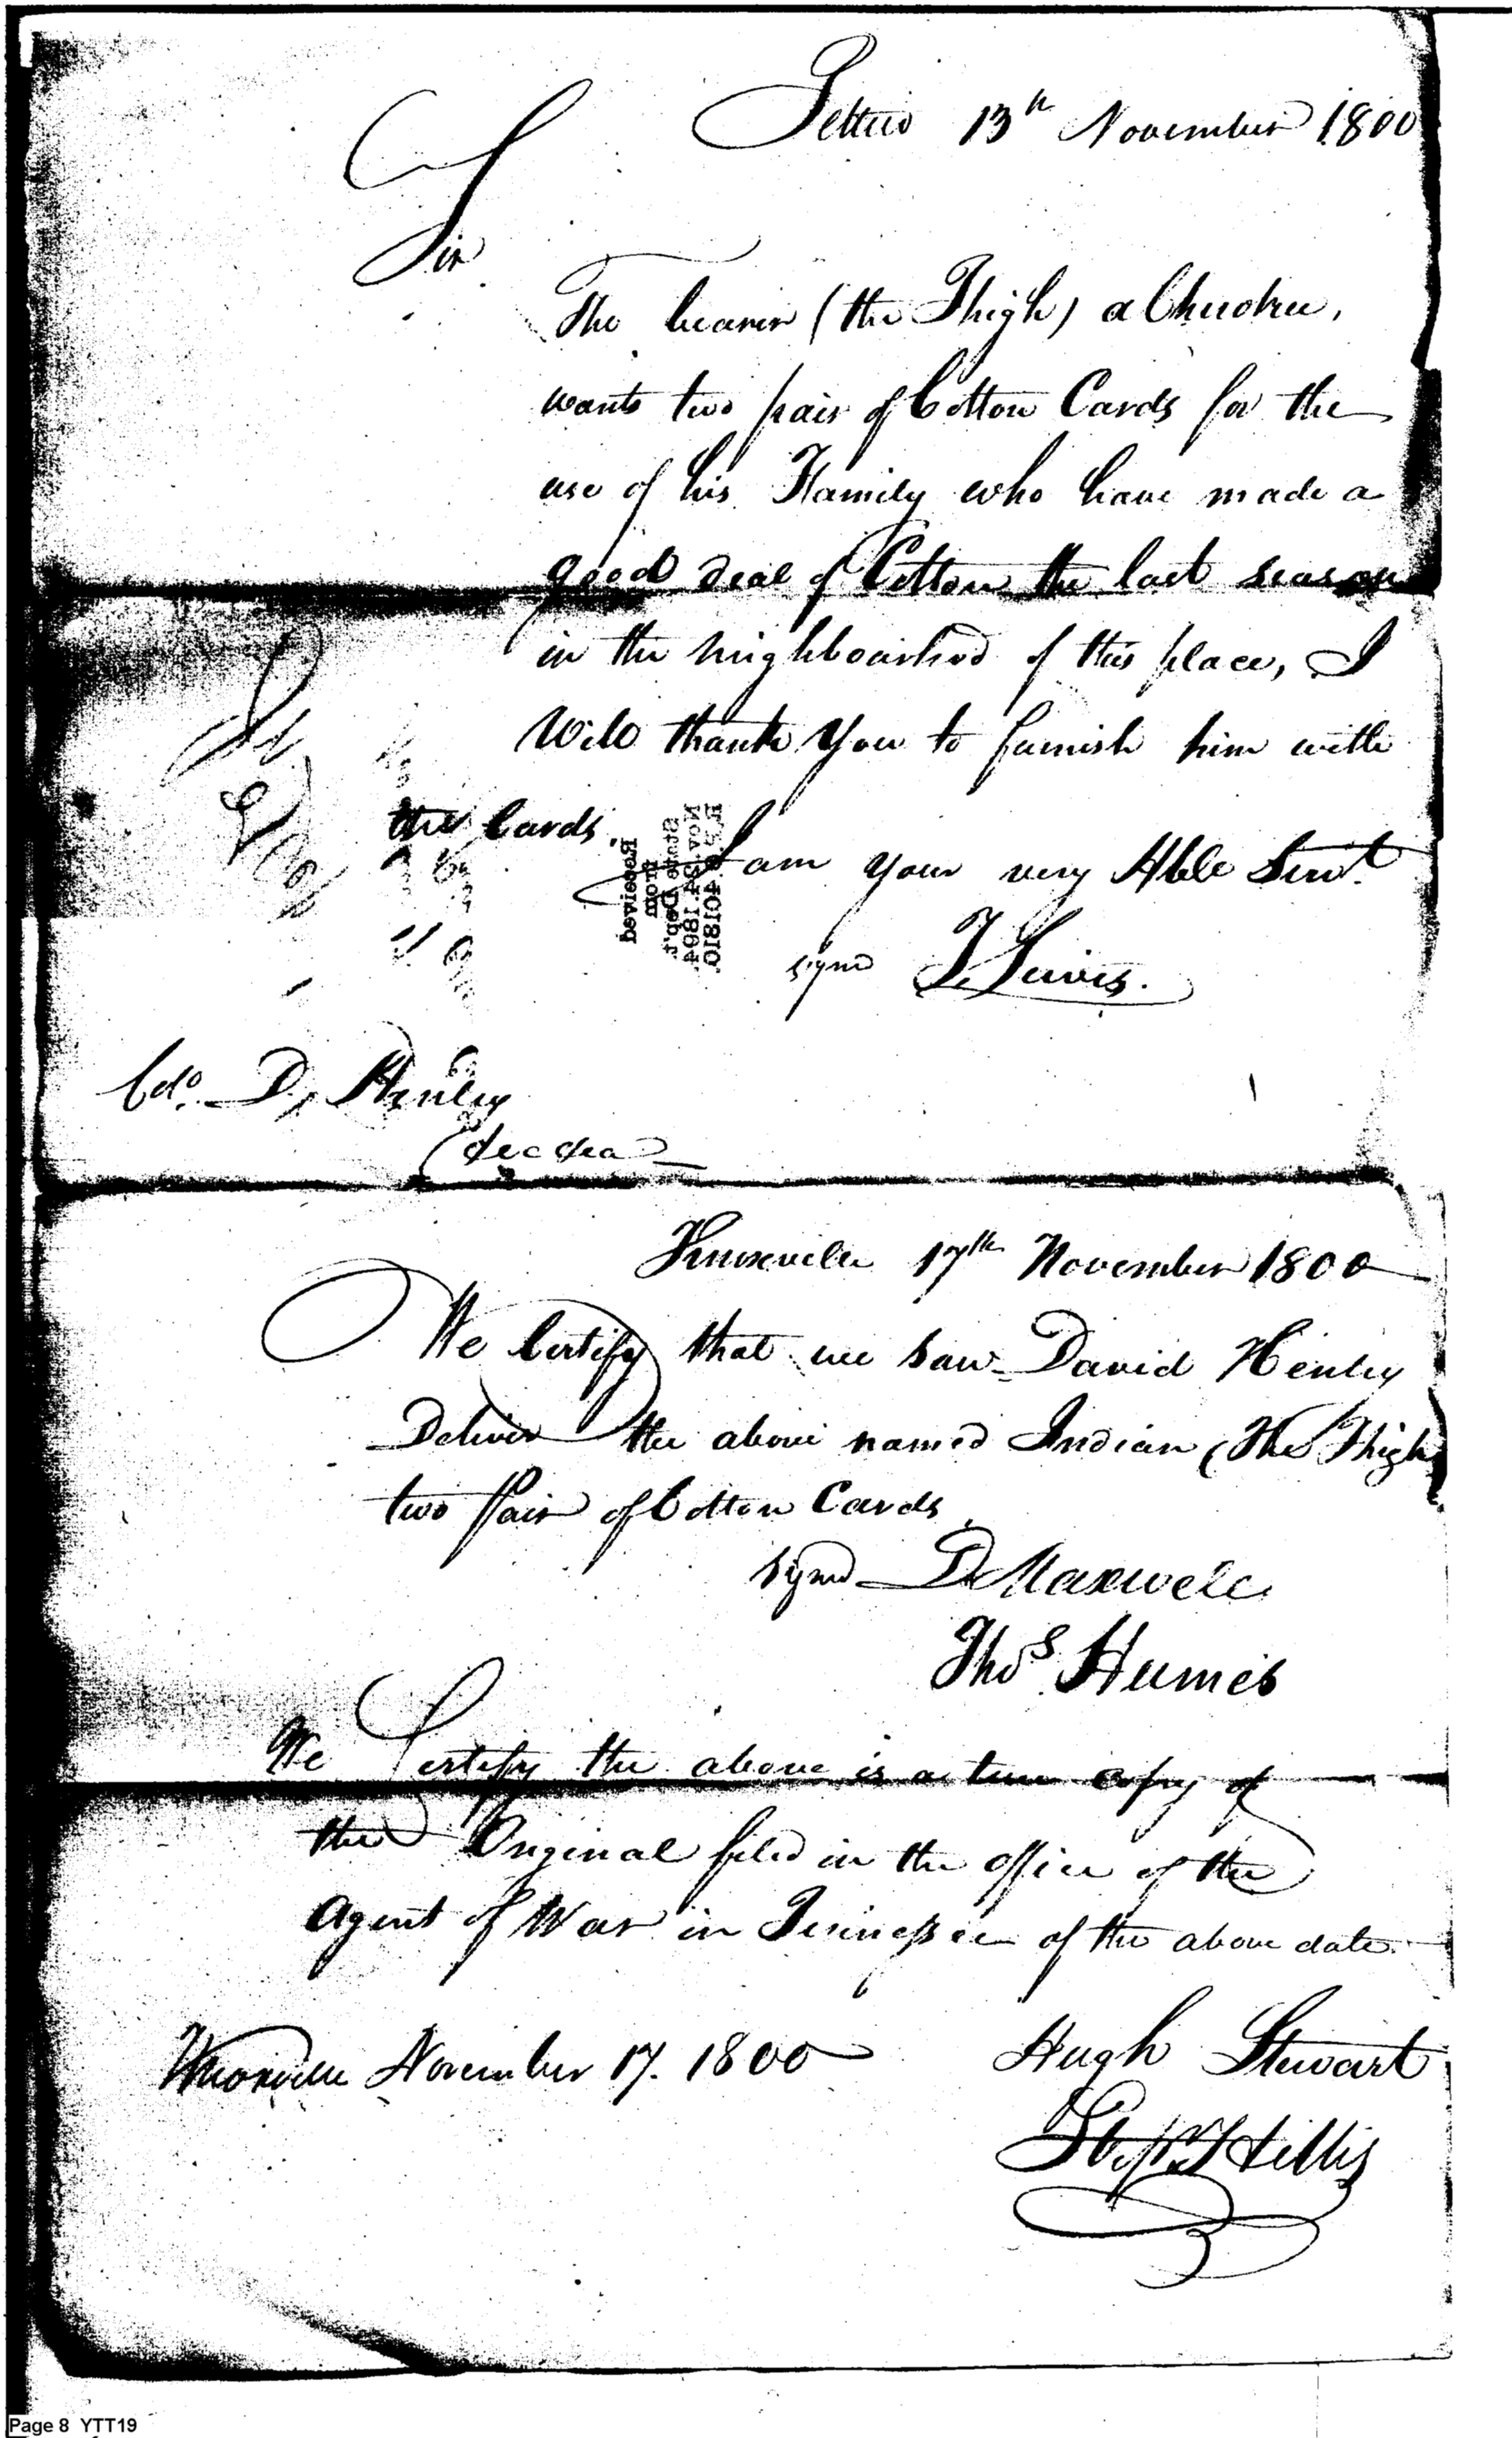 Tellico 13th November 1800
Sir
The bearer (the Thigh) a Cherokee,
wants two pair of Cotton Cards for the
use of his Family who have made a
good deal of Cotton the last season
in the neighbourhood of this place, I
will thank you to furnish him with
the Cards.
I am your very Hble Servt.
signd T. Lewis.
Received
from
State Dep't.
Nov. 24. 1894.
Colo. D. Henley
Knoxville 17th November 1800
We Certify that we saw David Henley
Deliver the above named Indian (The Thigh
two Pair of Cotton Cards
signd D Maxwell
Thos Humes
We Certify the above is a true copy of
the Original filed in the office of the
Agent of War in Tennessee of the above date.
Knoxville November 17. 1800
Hugh Stewart
Hillis
Page 8 YTT19